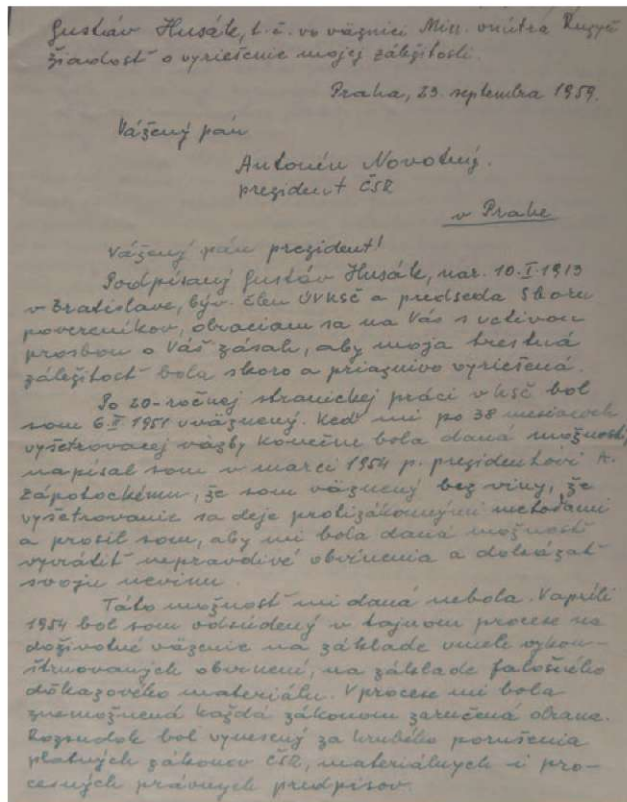 Gustáv Husák, t.č. vo väznici Min. vnútra Ruzyň
žiadosť o vyriešenie mojej záležitosti.
Praha, 23. septembra 1959.
Vážený pán
Antonín Novotný.
prezident ČSR
v Prahe
Vážený pán prezident!
Podpísaný Gustáv Husák, nar. 10.I.1913
v Bratislave, býv. člen ÚV KSČ a predseda Sboru
povereníkov, obraciam sa na Vás s uctivou
prosbou o Váš zásah, aby moja trestná
záležitosť bola skoro a priaznivo vyriešená.
Po 20-ročnej straníckej práci v KSČ bol
som 6.II.1951 uväznený. Keď mi po 38 mesiacoch
vyšetrovacej väzby konečne bola daná možnosť,
napísal som v marci 1954 p. prezidentovi A.
Zápotockému, že som väznený bez viny, že
vyšetrovanie sa deje protizákonnými metódami
a prosil som, aby mi bola daná možnosť
vyvrátiť nepravdivé obvinenia a dokázať
svoju nevinu.
Táto možnosť mi daná nebola. V apríli
1954 bol som odsúdený v tajnom procese na
doživotné väzenie na základe umele vykon-
štruovaných obvinení, na základe falošného
dôkazového materiálu. V procese mi bola
znemožnená každá zákonom zaručená obrana.
Rozsudok bol vynesený za hrubého porušenia
platných zákonov ČSR, materiálnych i pro-
cesných právnych predpisov.